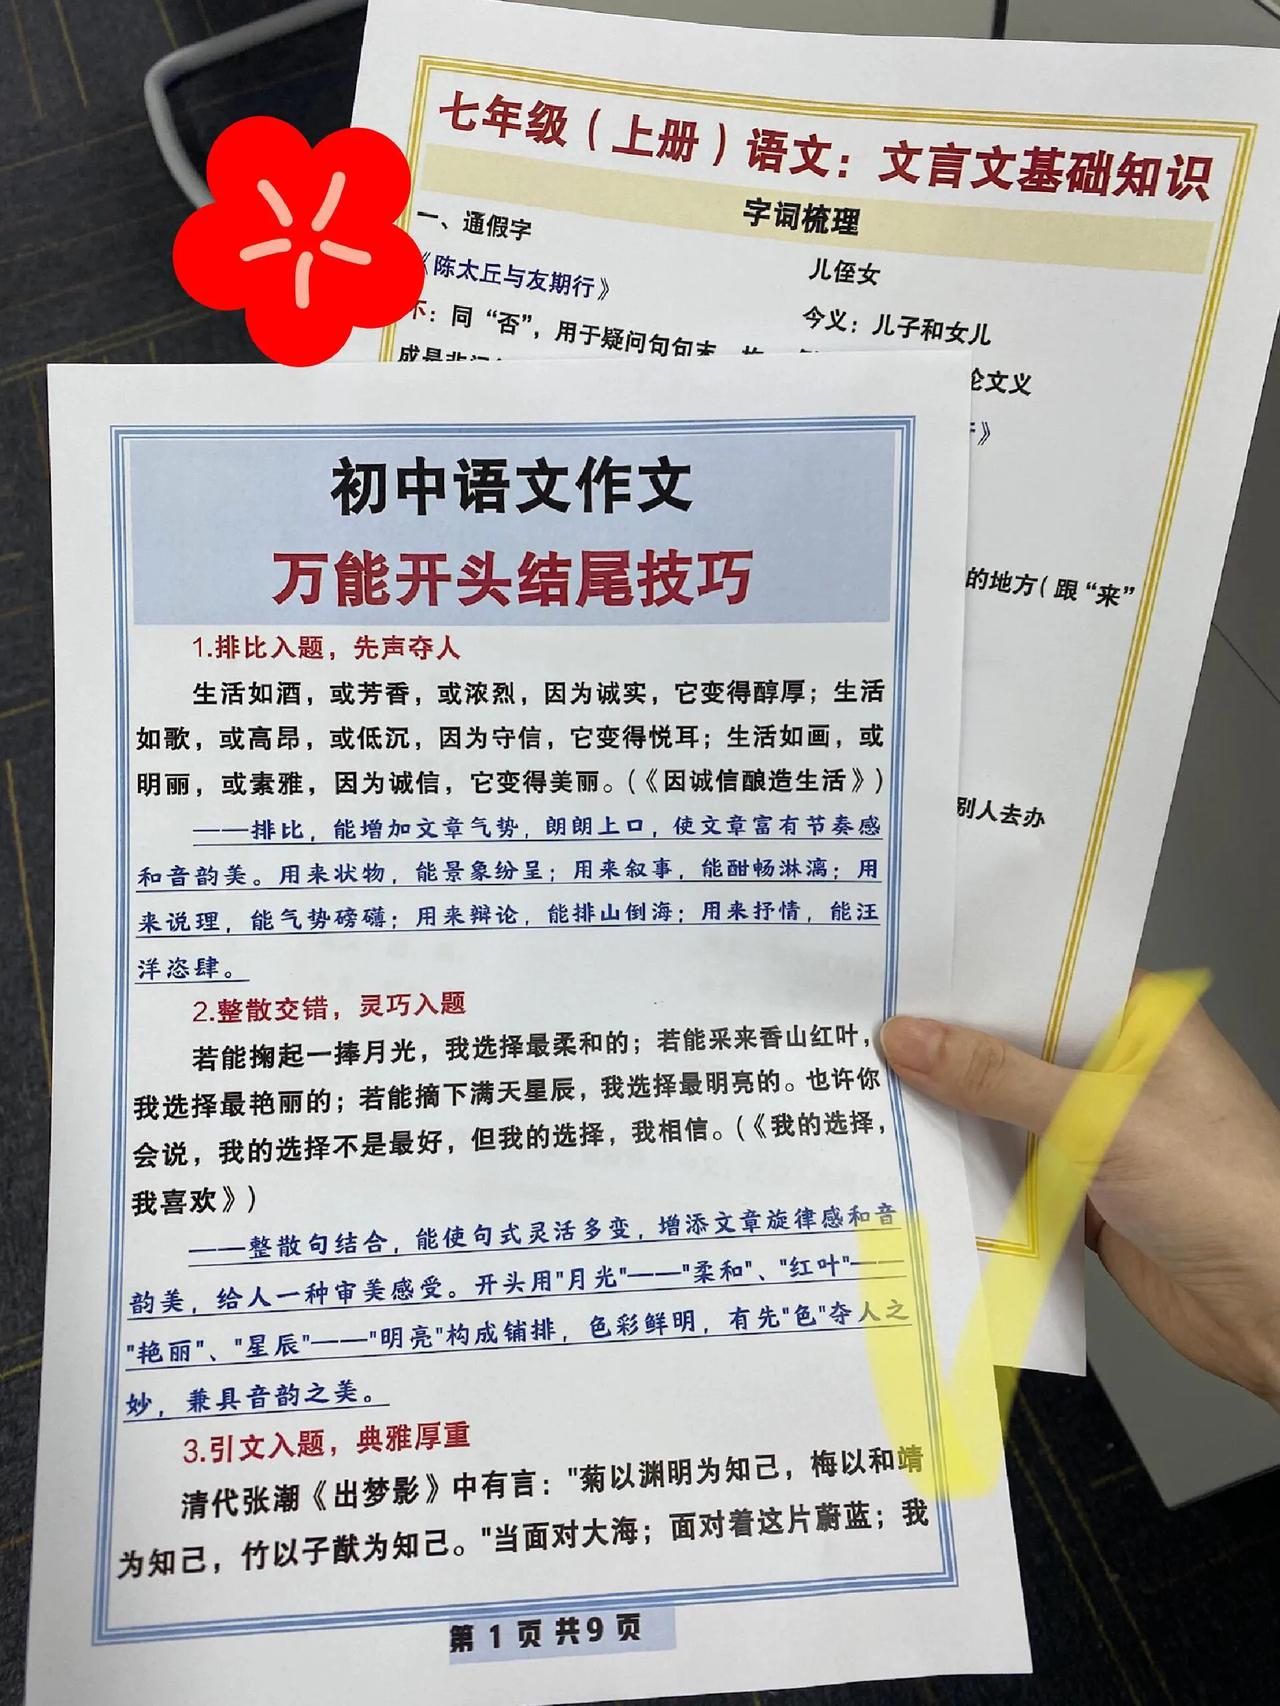 七年级（上册）语文：文言文基础知识
字词梳理
一、通假字
《陈太丘与友期行》
不：同“否”，用于疑问句句末，构
成是非问
儿侄女
今义：儿子和女儿
论文义
》
的地方（跟“来”
别人去办
初中语文作文
万能开头结尾技巧
1.排比入题，先声夺人
生活如酒，或芳香，或浓烈，因为诚实，它变得醇厚；生活
如歌，或高昂，或低沉，因为守信，它变得悦耳；生活如画，或
明丽，或素雅，因为诚信，它变得美丽。(《因诚信酿造生活》)
——排比，能增加文章气势，朗朗上口，使文章富有节奏感
和音韵美。用来状物，能景象纷呈；用来叙事，能酣畅淋漓；用
来说理，能气势磅礴；用来辩论，能排山倒海；用来抒情，能汪
洋恣肆。
2.整散交错，灵巧入题
若能掬起一捧月光，我选择最柔和的；若能采来香山红叶，
我选择最艳丽的；若能摘下满天星辰，我选择最明亮的。也许你
会说，我的选择不是最好，但我的选择，我相信。(《我的选择，
我喜欢》)
——整散句结合，能使句式灵活多变，增添文章旋律感和音
韵美，给人一种审美感受。开头用"月光"——"柔和"、"红叶"——
"艳丽"、"星辰"——"明亮"构成铺排，色彩鲜明，有先"色"夺人之
妙，兼具音韵之美。
3.引文入题，典雅厚重
清代张潮《出梦影》中有言："菊以渊明为知己，梅以和靖
为知己，竹以子猷为知己。"当面对大海；面对着这片蔚蓝；我
第 1 页 共9 页